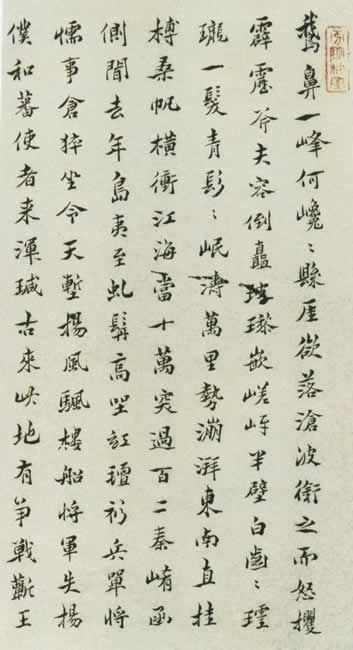 鵝鼻一峰何巉〻縣厓欲落滄波銜之而怒攫
霹靂斧夫容倒矗嵌嵯半壁白齒〻
瓏一髮青髟〻岷濤萬里勢漰湃東南直挂
榑桑帆橫衝江海當十萬突過百二秦崤函
側聞去年島夷至虬髯高坐紅衫兵單將
懦事倉猝坐令天塹揚風颿樓船將軍失楊
僕和蕃使者来渾瑊古来此地有爭戰蘄王